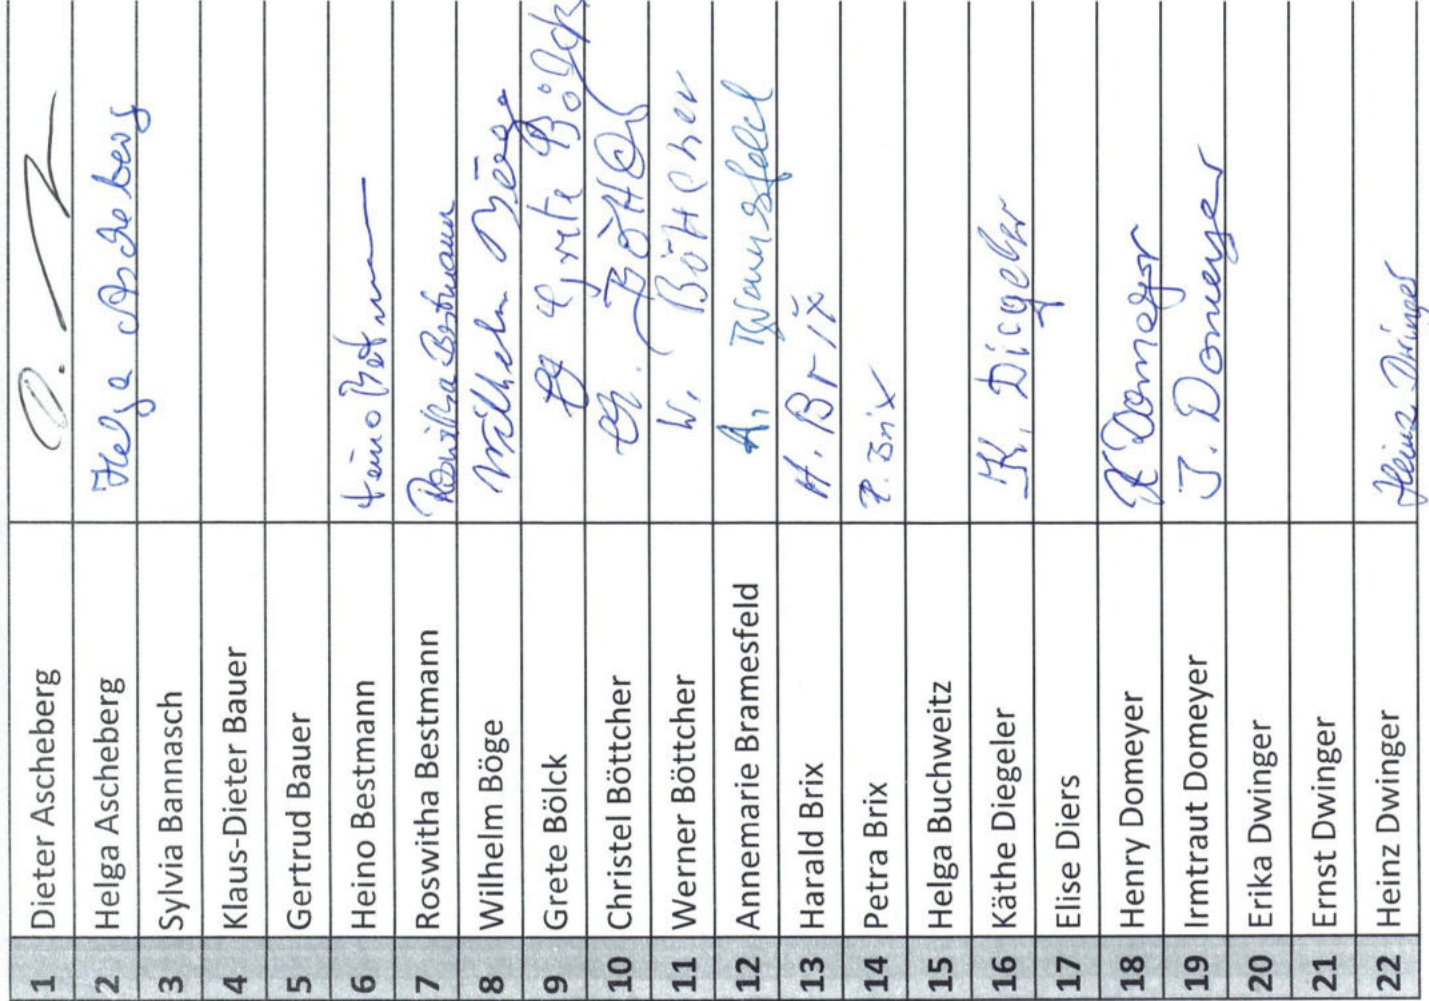 1 Dieter Ascheberg
2 Helga Ascheberg Helga Ascheberg
3 Sylvia Bannasch
4 Klaus-Dieter Bauer
5 Gertrud Bauer
6 Heino Bestmann
7 Roswitha Bestmann Roswitha Bestmann
8 Wilhelm Böge Wilhelm Böge
9 Grete Bölck Grete Bölck
10 Christel Böttcher
11 Werner Böttcher W. Böttcher
12 Annemarie Bramesfeld A. Bramesfeld
13 Harald Brix H. Brix
14 Petra Brix P. Brix
15 Helga Buchweitz
16 Käthe Diegeler K. Diegeler
17 Elise Diers
18 Henry Domeyer H Domeyer
19 Irmtraut Domeyer J. Domeyer
20 Erika Dwinger
21 Ernst Dwinger
22 Heinz Dwinger Heinz Dwinger